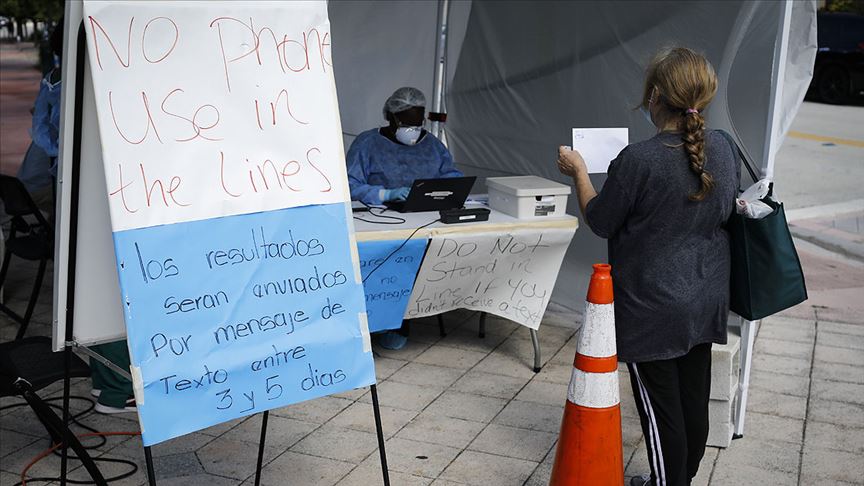 No phone
Use in
the Lines
los resultados
seran enviados
por mensaje de
Texto entre
3 y 5 dias
en
no
Do Not
Stand in
Line if you
didn't receive a text